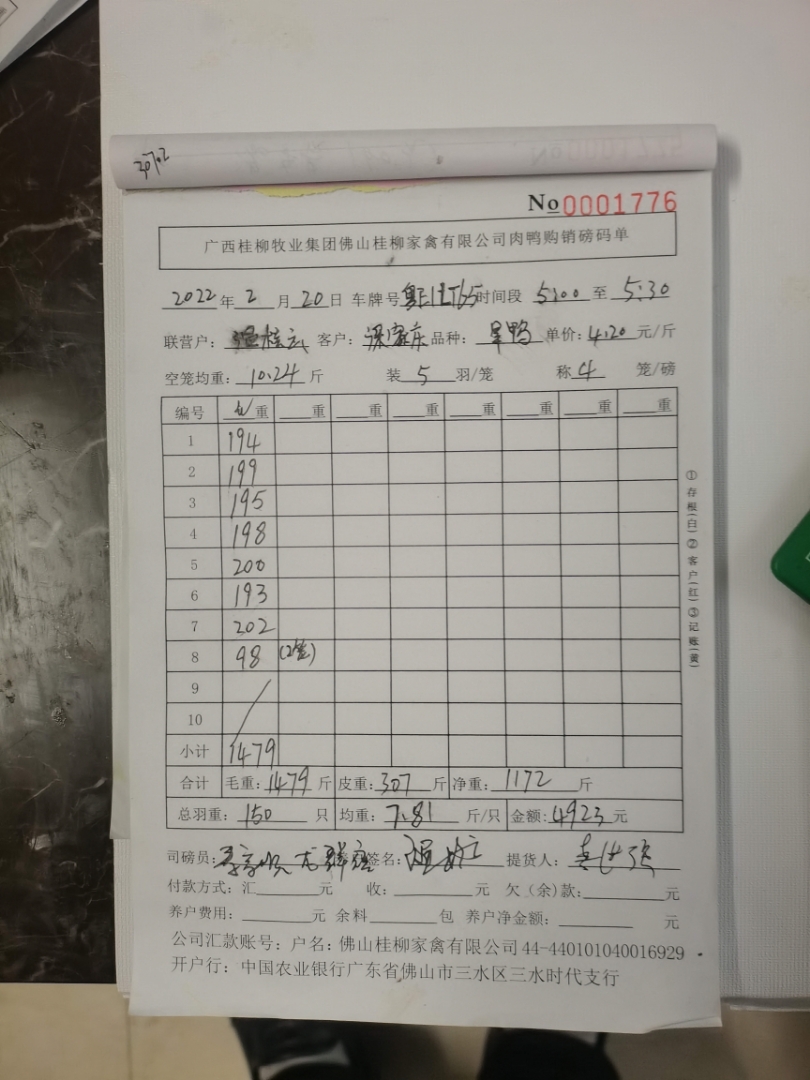 No 0001776
广西桂柳牧业集团佛山桂柳家禽有限公司肉鸭购销磅码单
2022年 2月 20日 车牌号 时间段 5:00 至 5:30
联营户: 客户: 品种: 单价: 4.20 元/斤
空笼均重: 10.24 斤 装 5 羽/笼 称 4 笼/磅
编号 重 重 重 重 重 重 重 重
1 194
2 199
3 195
4 198
5 200
6 193
7 202
8 98
9
10
小计 1479
合计 毛重: 1479 斤 皮重: 307 斤 净重: 1172 斤
总羽重: 150 只 均重: 7.81 斤/只 金额: 4923 元
司磅员: 签名: 提货人:
付款方式: 汇 元 收: 元 欠(余)款: 元
养户费用: 元 余料 包 养户净金额: 元
公司汇款账号: 户名: 佛山桂柳家禽有限公司 44-440101040016929
开户行: 中国农业银行广东省佛山市三水区三水时代支行
①存根(白)②客户(红)③记账(黄)